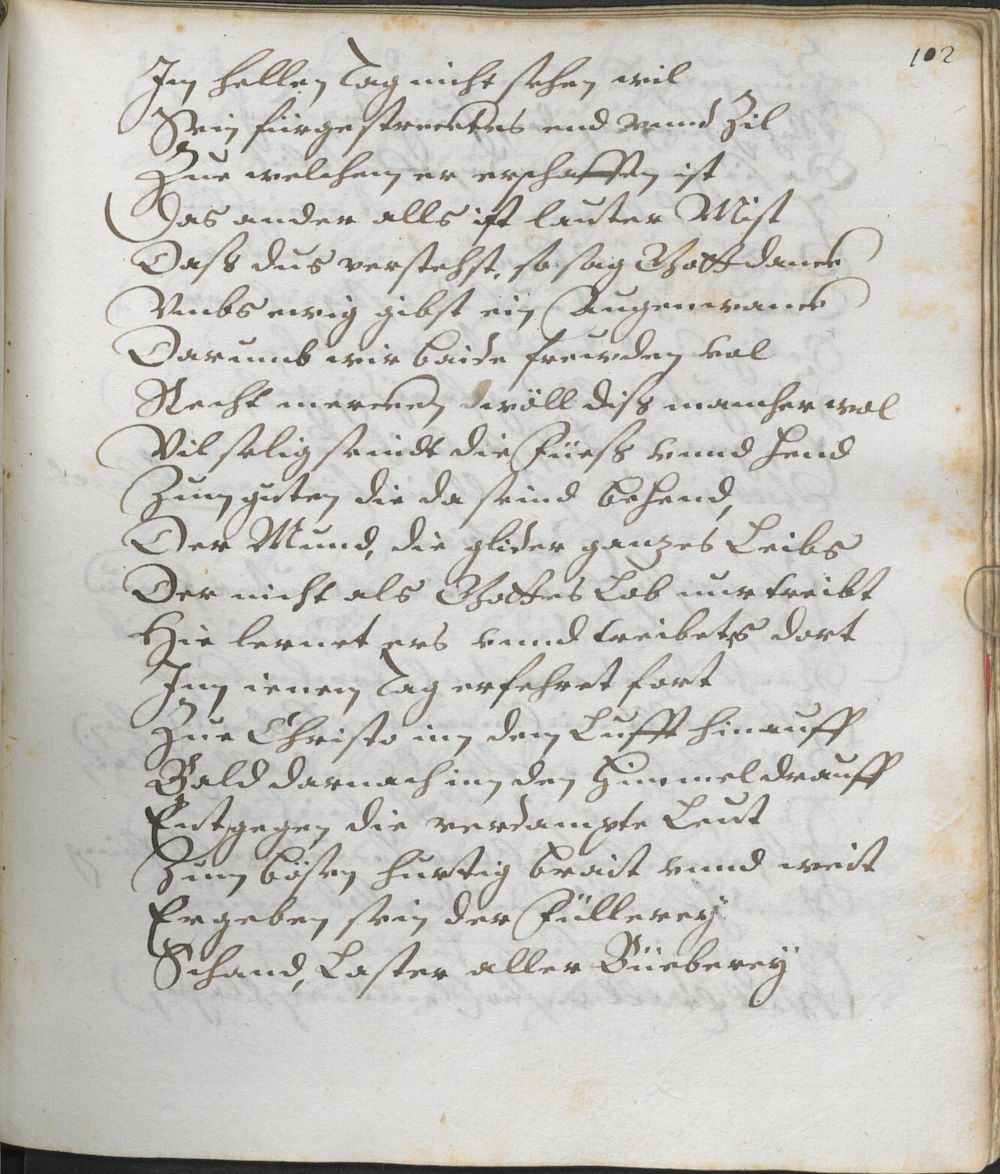 102
Im hellen Tag nicht sehen wil
Sein fürgestrecktes end vnnd Zil
Zue welchem er erschaffen ist
Das ander alls ist lauter Mist
Dass dus verstehst, so sag Gott danck
Vmbs ewig gibst ein Augenwanck
Darumb wir baide frewden vol
Recht mercken wöll diss mancher wol
Vil selig seindt die Füess vnnd hend
Zum guten die da seind behend,
Der Mund, die glider ganzes Leibs
Der nicht als Gottes Lob nur treibt
Hie lernet ers vnnd treibets dort
Im ienem Tag erfehret fort
Zue Christo inn dem Lufft hinauff
Bald darnach inn den Himmel drauff
Entgegen die verdampte Leut
Zum bösen hurtig brait vnnd weit
Ergeben sein der Füllerey
Schand, Laster aller Büeberey